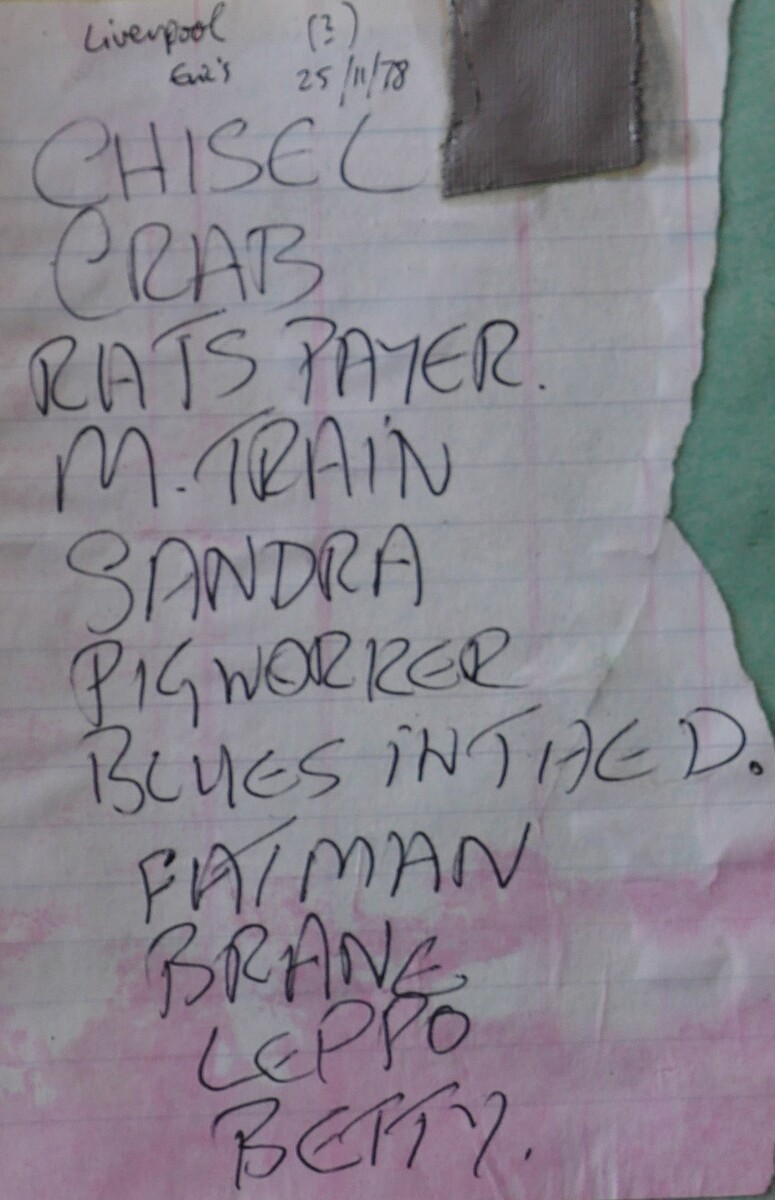 Liverpool (?)
Eric's 25/11/78
CHISEL
CRAB
RATS PAYER.
M. TRAIN
SANDRA
PIGWORKER
BLUES IN THE D.
FATMAN
BRANE
LEPPO
BETTY.